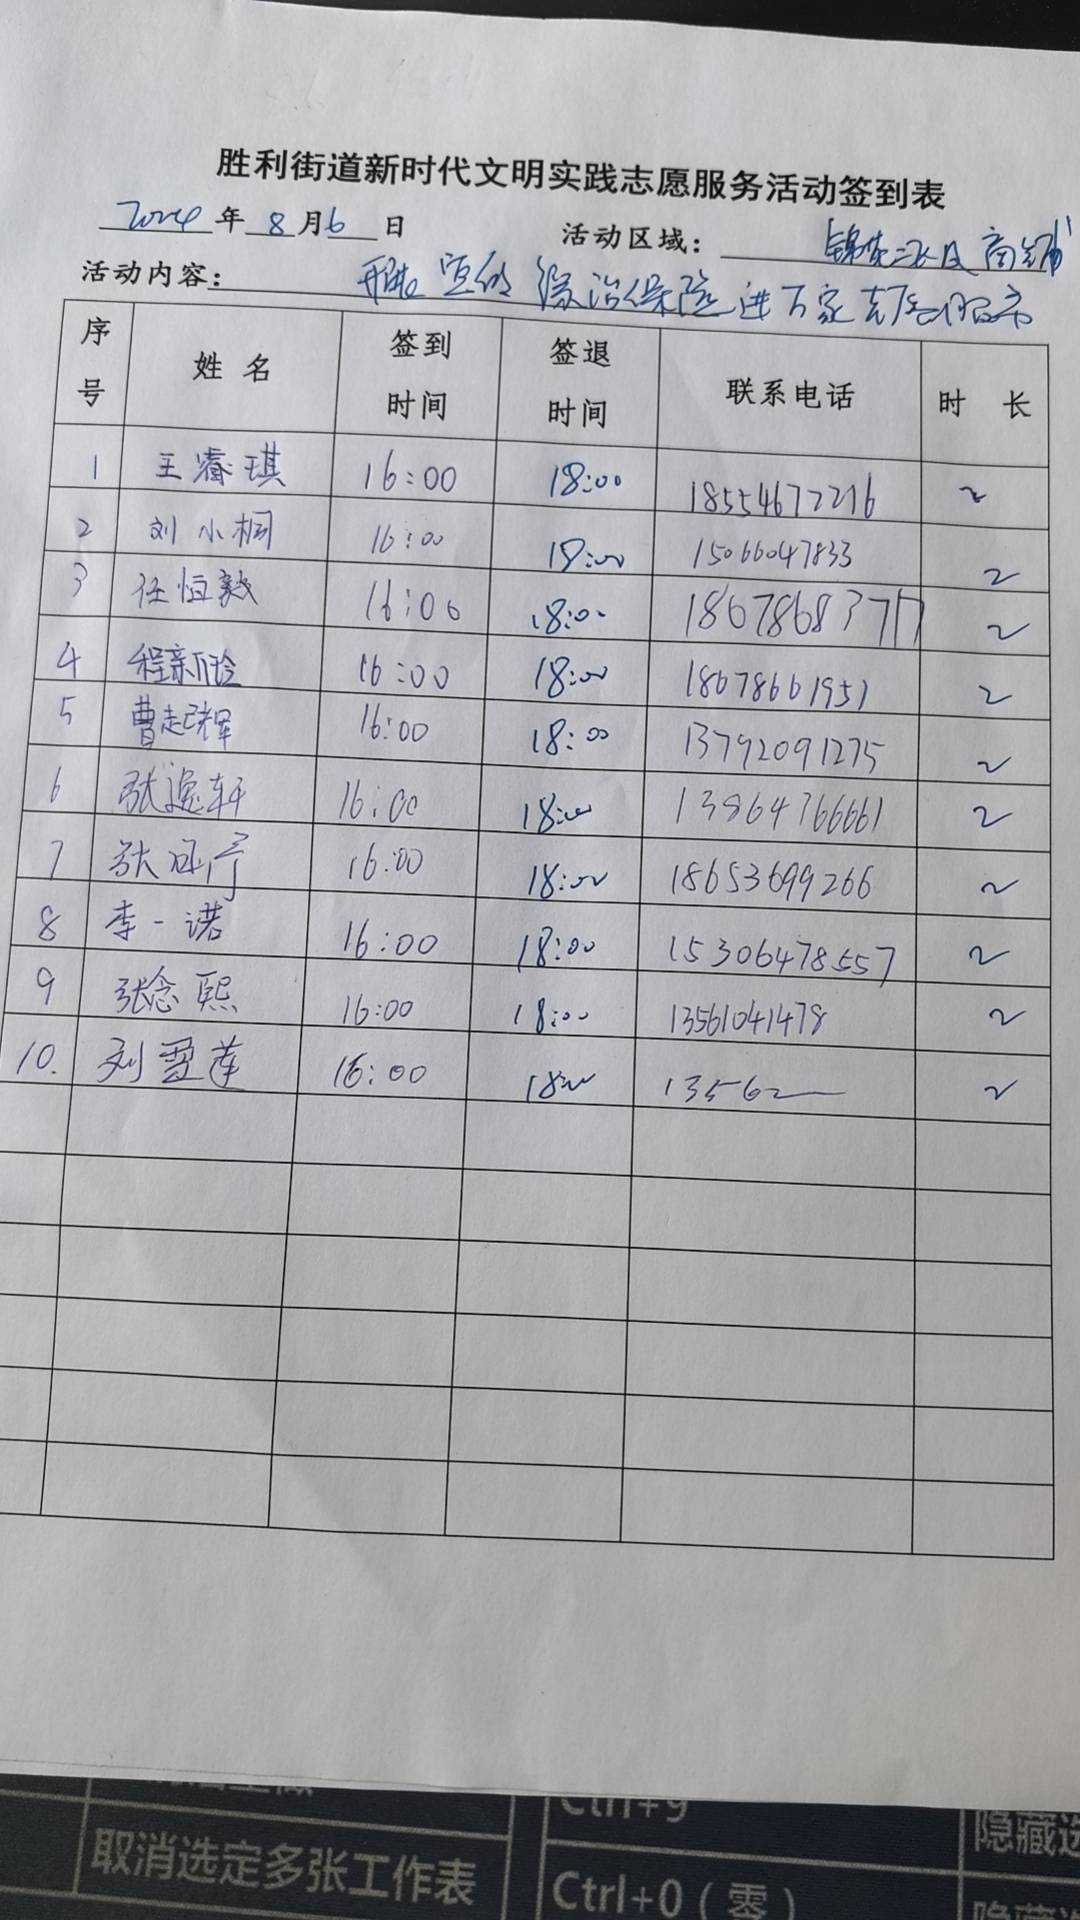 胜利街道新时代文明实践志愿服务活动签到表
2024年8月6日 活动区域：锦城 及商铺
活动内容： 综治保险进万家志愿服务
序号 姓名 签到时间 签退时间 联系电话 时长
1 王睿琪 16:00 18:00 18554672216 2
2 刘小桐 16:00 18:00 15066047833 2
3 任恒毅 16:00 18:00 18678683717 2
4 程新玲 16:00 18:00 18678661951 2
5 曹起辉 16:00 18:00 13792091275 2
6 张逸轩 16:00 18:00 13964766661 2
7 张 16:00 18:00 18653699266 2
8 李一诺 16:00 18:00 15306478557 2
9 张念熙 16:00 18:00 13561041478 2
10. 刘雪莲 16:00 18:00 13562 2
Ctrl+9
取消选定多张工作表 Ctrl+0（零） 隐藏选